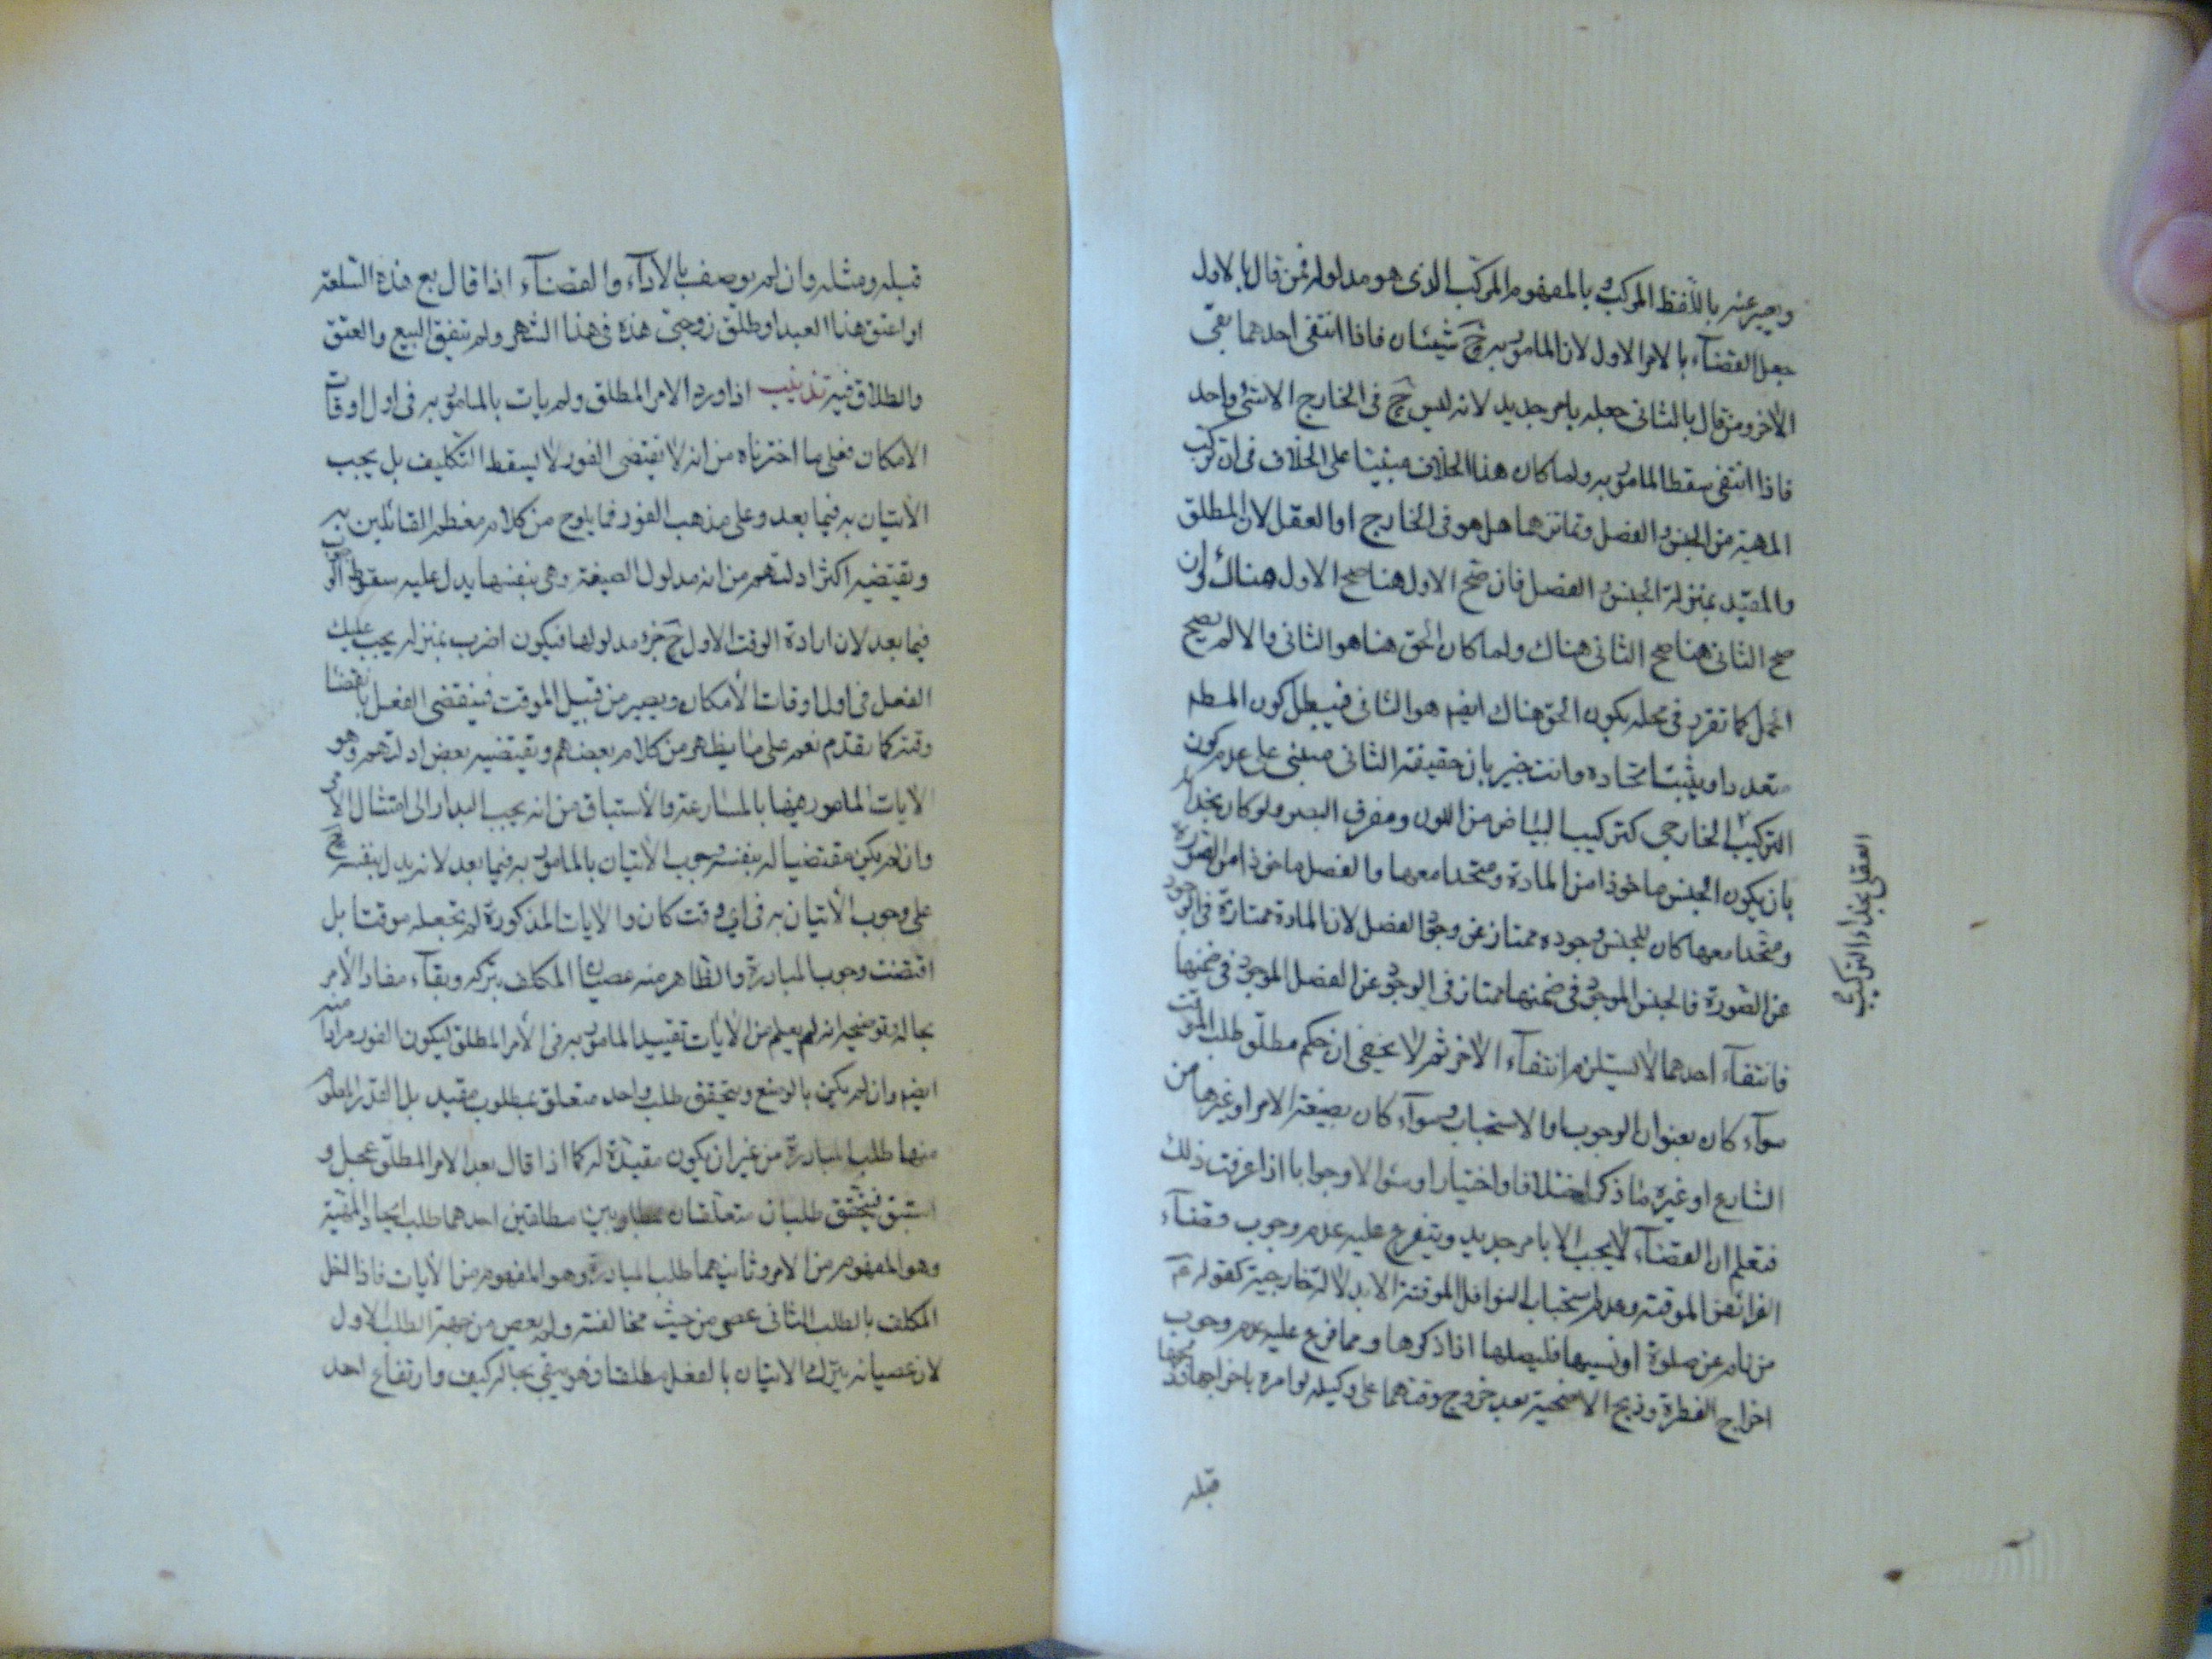 ويعبر عنه باللفظ المركب وبالمفهوم المركب الذى هو مدلوله فمن قال بالاول
جعل القضاء بالامر الاول لان المامور به ح شيئان فاذا انتفى احدهما بقى
الاخر ومن قال بالثانى جعله بامر جديد لانه ليس ح فى الخارج الا شئ واحد
فاذا انتفى سقط المامور به ولما كان هذا الخلاف مبنيا على الخلاف فى ان تركب
المهية من الجنس والفصل وتمايزهما هل هو فى الخارج او العقل لان المطلق
والمقيد بمنزلة الجنس والفصل فان صح الاول هنا صح الاول هناك وان
صح الثانى هنا صح الثانى هناك ولما كان الحق هنا هو الثانى والا لم يصح
الحمل كما تقرر فى محله يكون الحق هناك ايضا هو الثانى فيبطل كون المط
متعددا ويثبت اتحاده وانت خبير بان حقيقة الثانى مبنى على عدم كون
التركيب الخارجى كتركيب البياض من اللون ومفرق البصر ولو كان بحذائه
بان يكون الجنس ماخوذا من المادة ومتحدا معها والفصل ماخوذا من الصورة
ومتحدا معها كان للجنس وجوده ممتاز عن وجود الفصل لان المادة ممتازة فى الوجود
عن الصورة فالجنس الموجود فى ضمنها ممتاز فى الوجود عن الفصل الموجود فى ضمنها
فانتفاء احدهما لا يستلزم انتفاء الاخر ثم لا يخفى ان حكم مطلق طلب الموقت
سواء كان بعنوان الوجوب او الاستحباب وسواء كان بصيغة الامر او غيرها من
الشارع او غيره ما ذكر اختلافا واختيارا وسئوالا وجوابا اذا عرفت ذلك
فتعلم ان القضاء لا يجب الا بامر جديد ويتفرع عليه عدم وجوب قضاء
الفرائض الموقتة وعدم استحباب النوافل الموقتة الا بدلالة خارجية كقوله ع
من نام عن صلوة او نسيها فليصلها اذا ذكرها ومما فرع عليه عدم وجوب
اخراج الفطرة وذبح الاضحية بعد خروج وقتهما على وكيله لو امره باخراجها
قبله
العقلى بحذاء التركيب
قبله ومثله وان لم يوصف بالاداء والقضاء اذا قال بع هذه السلعة
او اعتق هذا العبد او طلق زوجتى هذه فى هذا الشهر ولم يتفق البيع والعتق
والطلاق فيه تذنيب اذا ورد الامر المطلق ولم يات بالمامور به فى اول اوقات
الامكان فعلى ما اخترناه من انه لا يقتضى الفور لا يسقط التكليف بل يجب
الاتيان به فيما بعد وعلى مذهب الفور فما يلوح من كلام معظم القائلين به
ويقتضيه اكثر ادلتهم من انه مدلول الصيغة وهى بنفسها يدل عليه سقوط الوجوب
فيما بعد لان ارادة الوقت الاول ح جزء مدلولها فيكون اضرب بمنزلة يجب عليك
الفعل فى اول اوقات الامكان ويصير من قبيل الموقت فينقضى الفعل بانقضاء
وقته كما تقدم نعم على ما يظهر من كلام بعضهم ويقتضيه بعض ادلتهم وهو
الايات المامور فيها بالمسارعة والاستباق من انه يجب البدار الى امتثال الامر
وان لم يكن مقتضيا له بنفسه وجوب الاتيان بالمامور به فيما بعد لانه يدل بنفسه ح
على وجوب الاتيان به فى اى وقت كان والايات المذكورة لم تجعله موقتا بل
اقتضت وجوب المبادرة والظاهر منه عصيان المكلف بتركه وبقاء مفاد الامر
بحاله وتوضيحه انه لم يعلم من الايات تقييد المامور به فى الامر المطلق ليكون الفور مرادا منه
ايضا وان لم يكن بالوضع ويتحقق طلب واحد متعلق بمطلوب مقيد بل القدر المعلوم
منها طلب المبادرة من غير ان يكون مقيدة له كما اذا قال بعد الامر المطلق عجل و
استبق فيتحقق طلبان متعلقان بمطلوبين مطلقين احدهما طلب ايجاد المهية
وهو المفهوم من الامر وثانيهما طلب المبادرة وهو المفهوم من الايات فاذا اخل
المكلف بالطلب الثانى عصى من حيث مخالفته ولم يعص من جهة الطلب الاول
لان عصيانه بترك الاتيان بالفعل مطلقا فهو يبقى بحاله كيف وارتفاع احد